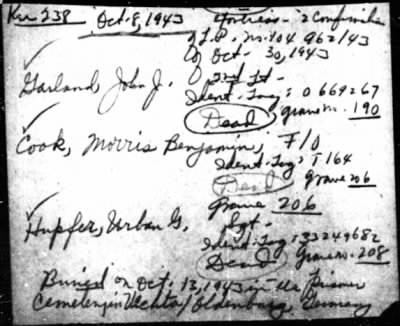 Ku 238 Oct. 8, 1943 Fortress - 2 Confirmation
of L.P. No. 104 962/43
of Oct. 30, 1943
Garland, John J. 2nd Lt -
Ident. Tag: O 669267
Dead grave no. 190
Cook, Morris Benjamin, F/O
Ident. Tag: T 164
Dead grave 206
Grave 206
Hupfer, Urban G. Sgt -
Ident. Tag: 33249682
Dead Grave no. 208
Buried on Oct. 13, 1943 in the Prisoner
Cemetery in Vechta/Oldenburg, Germany